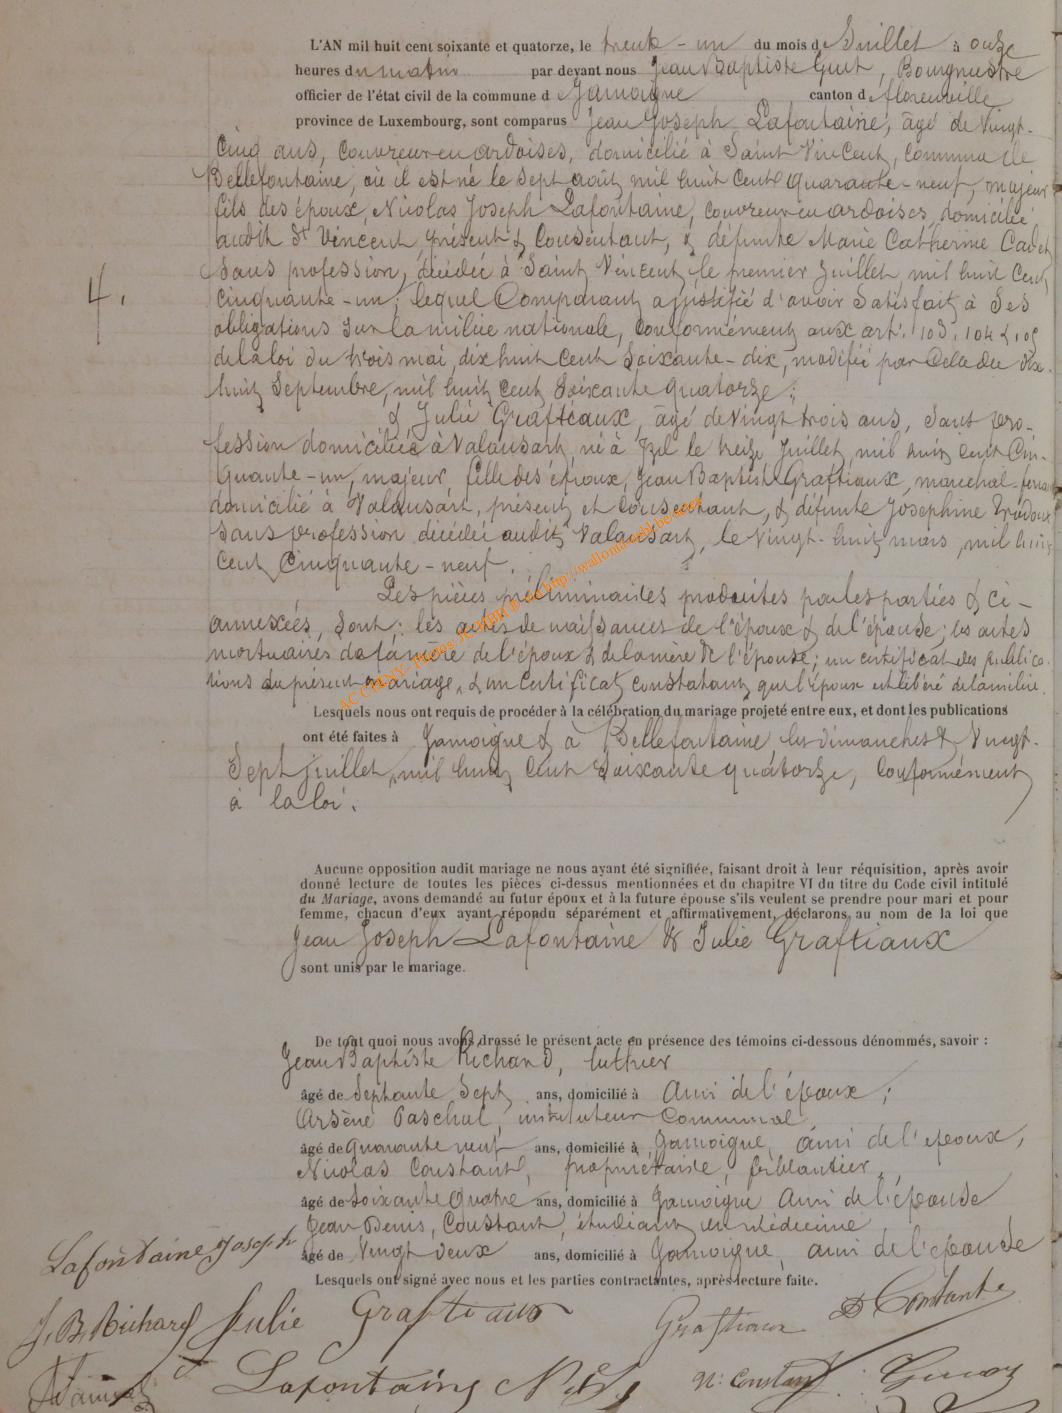 L'AN mil huit cent soixante et quatorze, le trente-un du mois de Juillet à onze
heures du matin par devant nous Jean Baptiste Guiot, Bourgmestre
officier de l'état civil de la commune d Jamoigne canton d florenville
province de Luxembourg, sont comparus Jean Joseph Lafontaine, âgé de Vingt-
Cinq ans, Couvreur en ardoises, domicilié à Saint Vincent, commune de
Bellefontaine, où il est né le sept août mil huit cent quarante-neuf, majeur
fils des époux Nicolas Joseph Lafontaine, couvreur en ardoises, domicilié
audit St Vincent, présent & Consentant, & défunte Marie Catherine Cadet
Sans profession, décédée à Saint Vincent, le premier Juillet mil huit cent
cinquante-un; lequel Comparant a justifié d'avoir Satisfait à Ses
obligations Sur la milice nationale, Conformément aux art. 103, 104 & 105
de la loi du trois mai, dix huit cent Soixante-dix, modifiée par Celle du dix-
huit Septembre, mil huit cent Soixante quatorze;
4.
& Julie Graftiaux, âgé de vingt trois ans, Sans pro-
fession domiciliée à Valansart, né à Izel le treize Juillet mil huit cent Cin-
quante-un, majeur, fille des époux, Jean Baptiste Graftiaux, maréchal-ferrant
domicilié à Valansart, présent et Consentant, & défunte Joséphine
Sans profession décédée audit Valansart, le Vingt-huit mars, mil huit
Cent Cinquante-neuf.
Les pièces préliminaires produites par les parties & Ci-
annexées, Sont: les actes de naissances de l'époux & de l'épouse; les actes
mortuaires de la mère de l'époux & de la mère de l'épouse; un certificat des publica-
tions du présent mariage, & un Certificat constatant que l'époux est libéré de la milice.
ACCHINY-Photos JCCHM & Co http://wallonia-asbl.be/acte
Lesquels nous ont requis de procéder à la célébration du mariage projeté entre eux, et dont les publications
ont été faites à Jamoigne & à Bellefontaine les dimanches & Vingt-
Sept juillet, mil huit Cent Soixante quatorze, Conformément
à la loi.
Aucune opposition audit mariage ne nous ayant été signifiée, faisant droit à leur réquisition, après avoir
donné lecture de toutes les pièces ci-dessus mentionnées et du chapitre VI du titre du Code civil intitulé
du Mariage, avons demandé au futur époux et à la future épouse s'ils veulent se prendre pour mari et pour
femme, chacun d'eux ayant répondu séparément et affirmativement, déclarons au nom de la loi que
Jean Joseph Lafontaine & Julie Graftiaux
sont unis par le mariage.
De tout quoi nous avons dressé le présent acte en présence des témoins ci-dessous dénommés, savoir :
Jean Baptiste Richard, luthier
âgé de Septante Sept ans, domicilié à Ami de l'époux;
Arsène Paschal, instituteur Communal
âgé de quarante neuf ans, domicilié à Jamoigne, ami de l'époux,
Nicolas Constant, propriétaire, ferblantier,
âgé de Soixante Quatre ans, domicilié à Jamoigne Ami de l'épouse
Jean Denis, Constant, étudiant en Médecine,
âgé de Vingt deux ans, domicilié à Jamoigne, ami de l'épouse
Lesquels ont signé avec nous et les parties contractantes, après lecture faite.
Lafontaine Joseph
J. B. Richard Julie Graftiaux Graftiaux D Constant
Lafontaine N. N. Constant